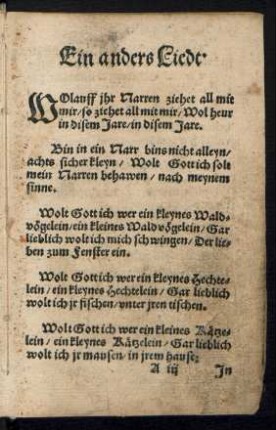 Ein anders Liedt.
WOlauff jhr Narren ziehet all mit
mir/so ziehet all mit mir/Wol heur
in disem Jare/in disem Jare.
Bin in ein Narr bins nicht alleyn/
achts sicher kleyn/ Wolt Gott ich solt
mein Narren behawen/nach meynem
sinne.
Wolt Gott ich wer ein kleynes Wald-
vögelein/ein kleines Waldvögelein/Gar
lieblich wolt ich mich schwingen/Der lie-
ben zum Fenster ein.
Wolt Gott ich wer ein kleynes Hechte-
lein/ein kleynes Hechtelein/Gar lieblich
wolt ich jr fischen/vnter jren tischen.
Wolt Gott ich wer ein kleines Kätze-
lein/ein kleynes Kätzelein/Gar lieblich
wolt ich jr mausen/in jrem hause:
A iij In